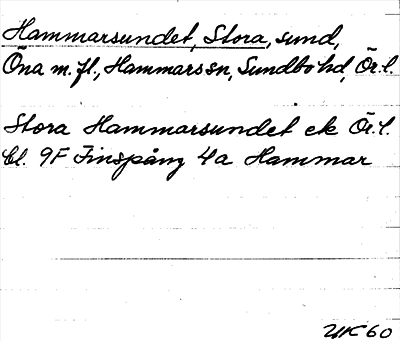 Hammarsundet, Stora, sund,
Öna m.fl., Hammars sn, Sundbo hd, Ör.l.
Stora Hammarsundet ek Ör.l.
bl. 9F Finspång 4a Hammar
60